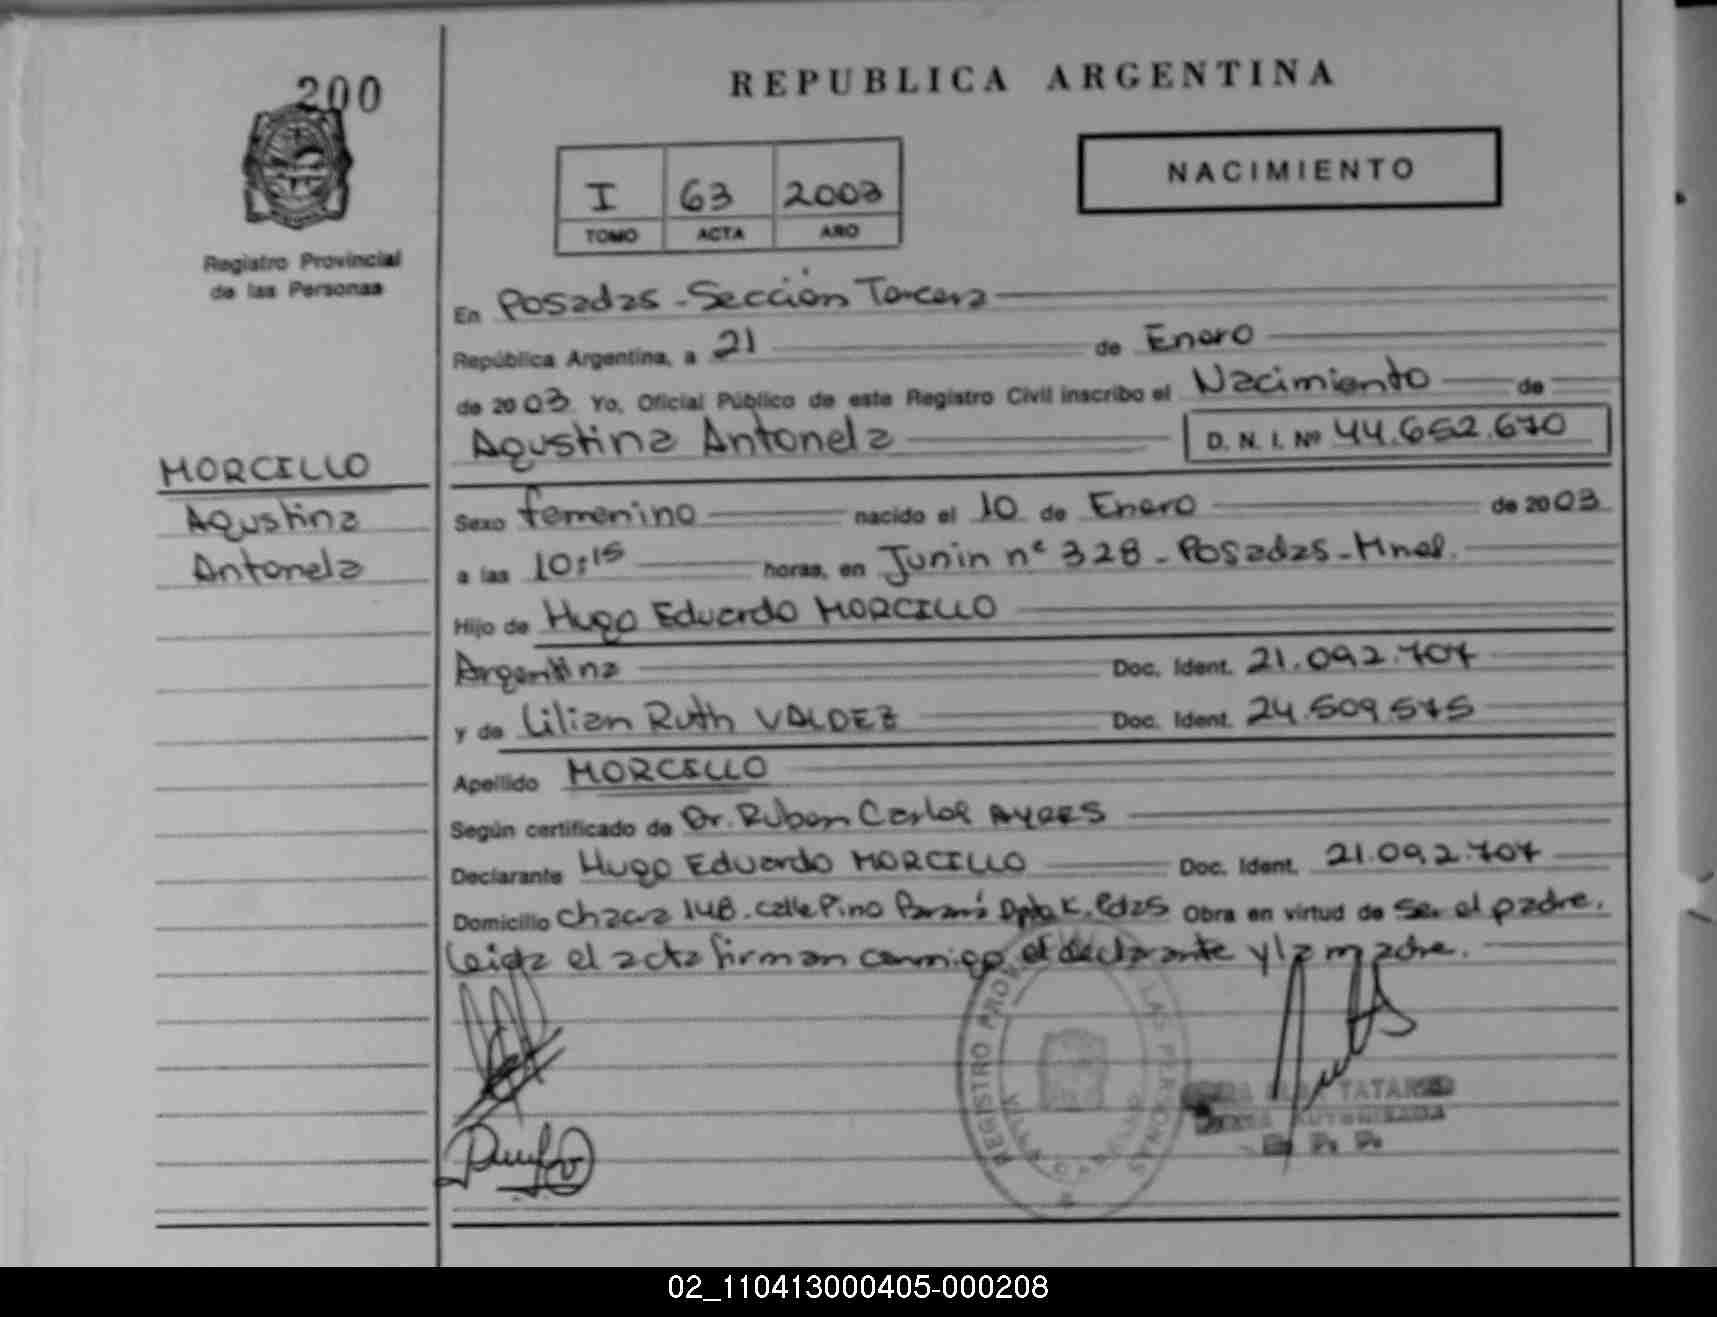 200
REPUBLICA ARGENTINA
I 63 2003
TOMO ACTA AÑO
NACIMIENTO
Registro Provincial
de las Personas
En Posadas - Sección Tercera
República Argentina, a 21 de Enero
de 2003 Yo, Oficial Público de este Registro Civil inscribo el Nacimiento de
Agustina Antonela D. N. I. Nº 44.652.670
MORCILLO
Agustina
Antonela
Sexo femenino nacido el 10 de Enero de 2003
a las 10:15 horas, en Junin nº 328 - Posadas - Mnes.
Hijo de Hugo Eduardo MORCILLO
Argentina Doc. Ident. 21.092.707
y de Lilian Ruth VALDEZ Doc. Ident. 24.509.575
Apellido MORCILLO
Según certificado de Dr. Ruben Carlos AYRES
Declarante Hugo Eduardo MORCILLO Doc. Ident. 21.092.707
Domicilio Chacra 148. calle Pino Paraná Dpto K. Pdas Obra en virtud de ser el padre.
Leida el acta firman conmigo el declarante y la madre.
REGISTRO LAS PERSONAS
02_110413000405-000208